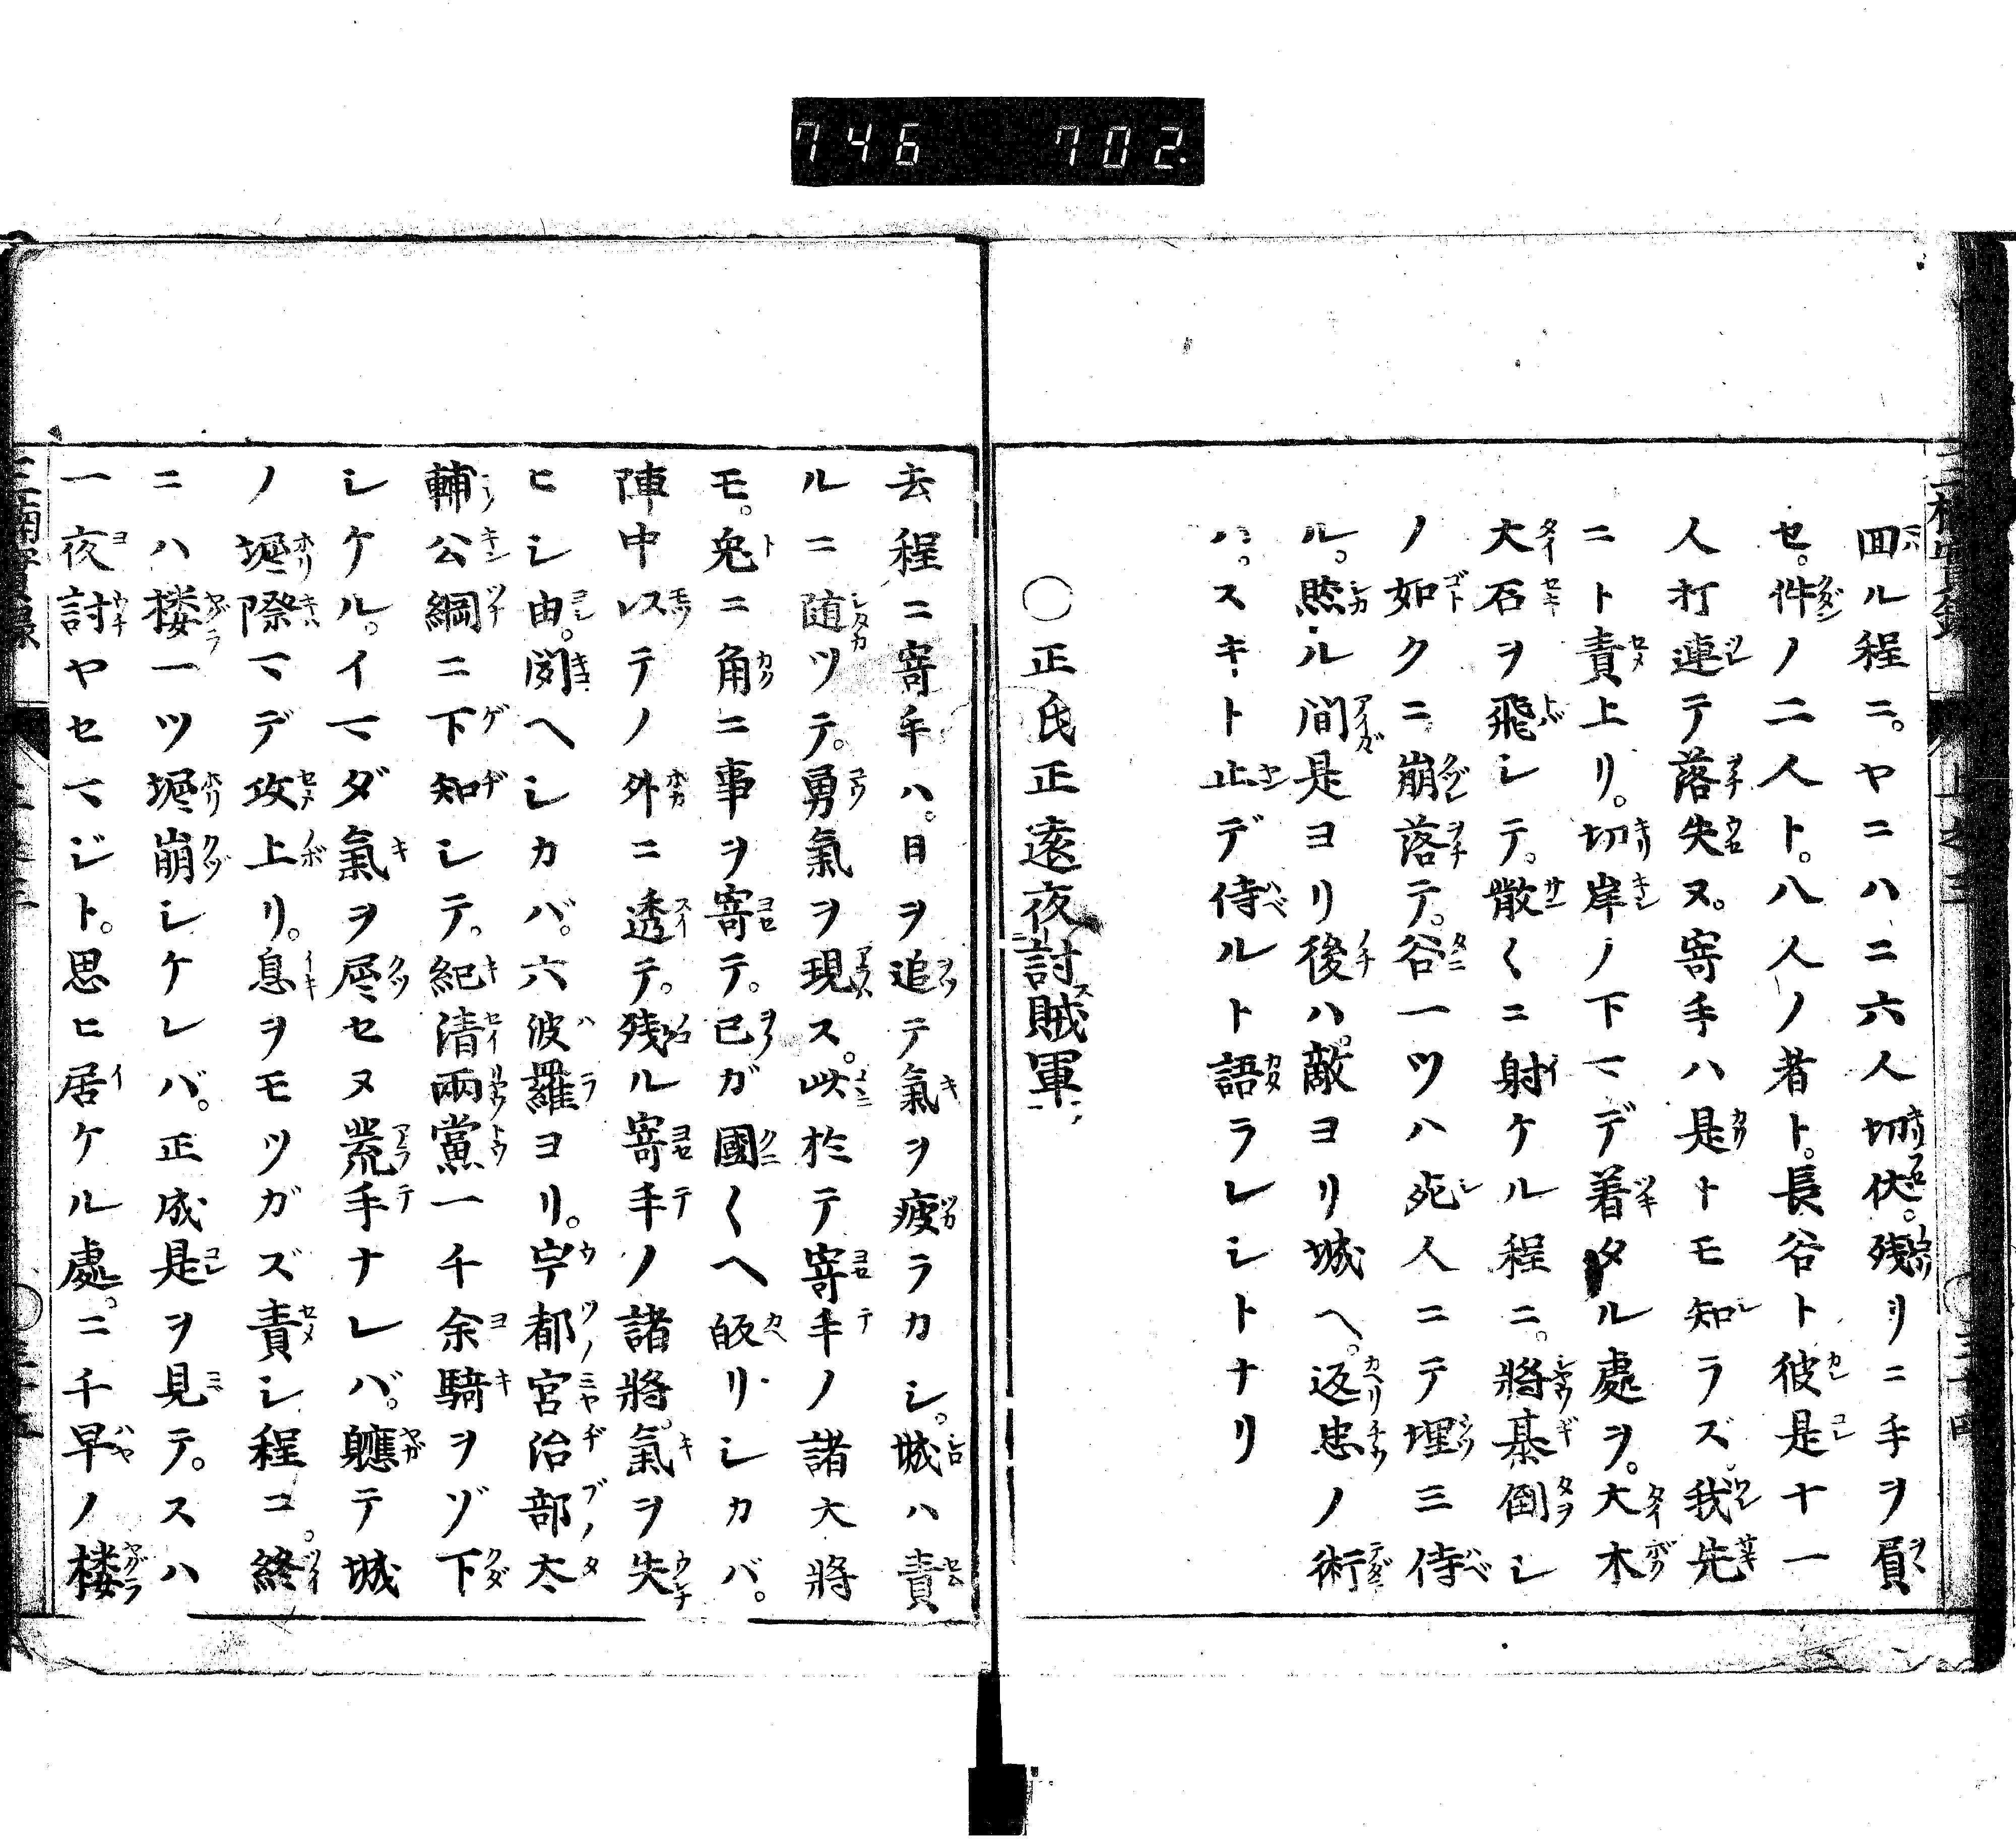 746 702.
囬ル程ニ。ヤニハニ六人切伏。残リニ手ヲ負
セ。件ノ二人ト。八人ノ者ト。長谷ト彼是十一
人打連テ落失ヌ。寄手ハ是トモ知ラズ。我先
ニト責上リ。切岸ノ下マデ着タル處ヲ。大木
大石ヲ飛シテ。散〱ニ射ケル程ニ。將棊倒シ
ノ如クニ崩落テ。谷一ツハ死人ニテ埋ミ侍
ル。然ル間是ヨリ後ハ。敵ヨリ城ヘ。返忠ノ術
ハ。スキト止デ侍ルト語ラレシトナリ
〇正氏正遠夜討賊軍
去程ニ寄手ハ。日ヲ追テ氣ヲ疲ラカシ。城ハ責
ルニ随ツテ。勇氣ヲ現ス。此於テ寄手ノ諸大將
モ。兔ニ角ニ事ヲ寄テ。已ガ國〱ヘ皈リシカバ。
陣中以テノ外ニ透テ。残ル寄手ノ諸將。氣ヲ失
ヒシ由。聞ヘシカバ。六波羅ヨリ。宇都宮治部太
輔公綱ニ下知シテ。紀清兩黨一千余騎ヲゾ下
シケル。イマダ氣ヲ屈セヌ荒手ナレバ。軈テ城
ノ堀際マデ攻上リ。息ヲモツガズ責シ程ニ。終
ニハ楼一ツ堀崩シケレバ。正成是ヲ見テ。スハ
一夜討ヤセマジト。思ヒ居ケル處ニ。千早ノ楼